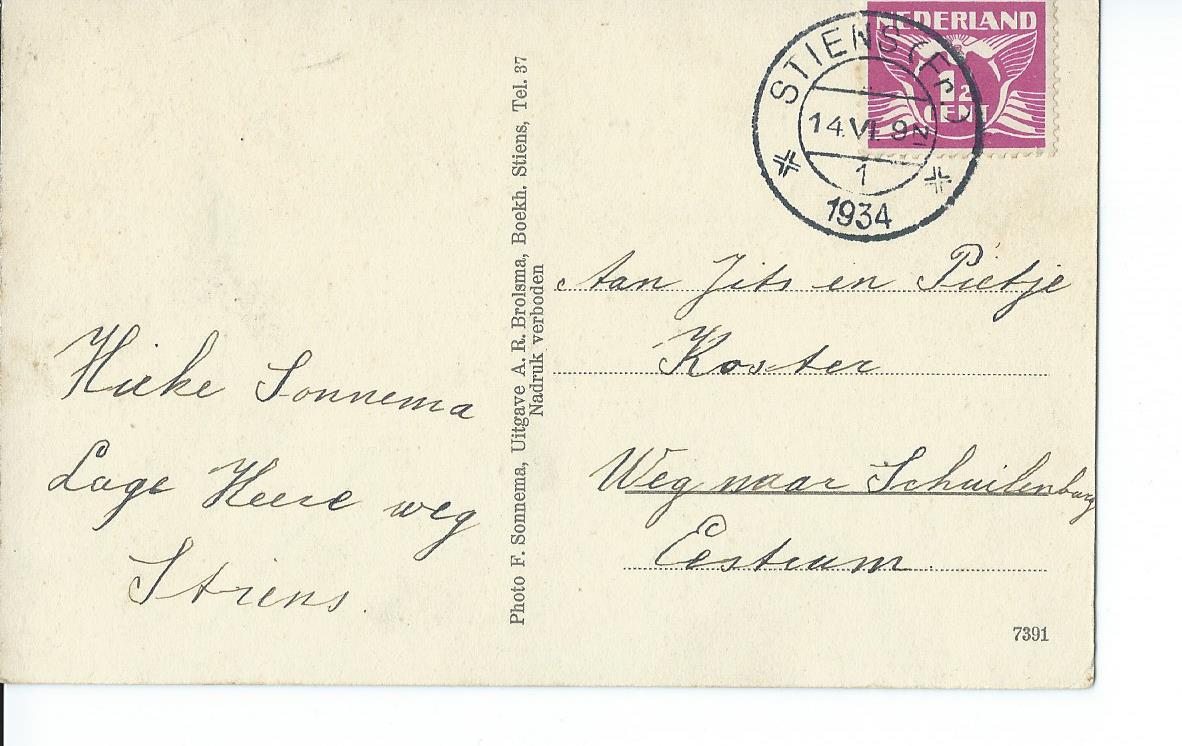 NEDERLAND
1½
CENT
STIENS (Fr.)
14.VI. 9N
1
1934
Aan Jits en Pietje
Koster
Weg naar Schuilenburg
Eestrum
Hieke Sonnema
Lage Heere weg
Stiens.
Photo F. Sonnema, Uitgave A. R. Brolsma, Boekh. Stiens, Tel. 37
Nadruk verboden
7391